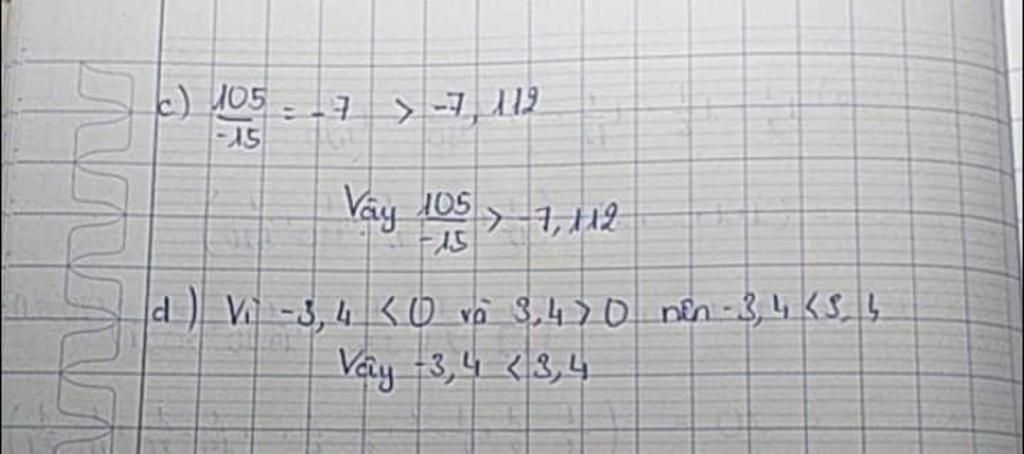 c) 105/-15 = -7 > -7,112
Vậy 105/-15 > -7,112
d) Vì -3,4 < 0 và 3,4 > 0 nên -3,4 < 3,4
Vậy -3,4 < 3,4